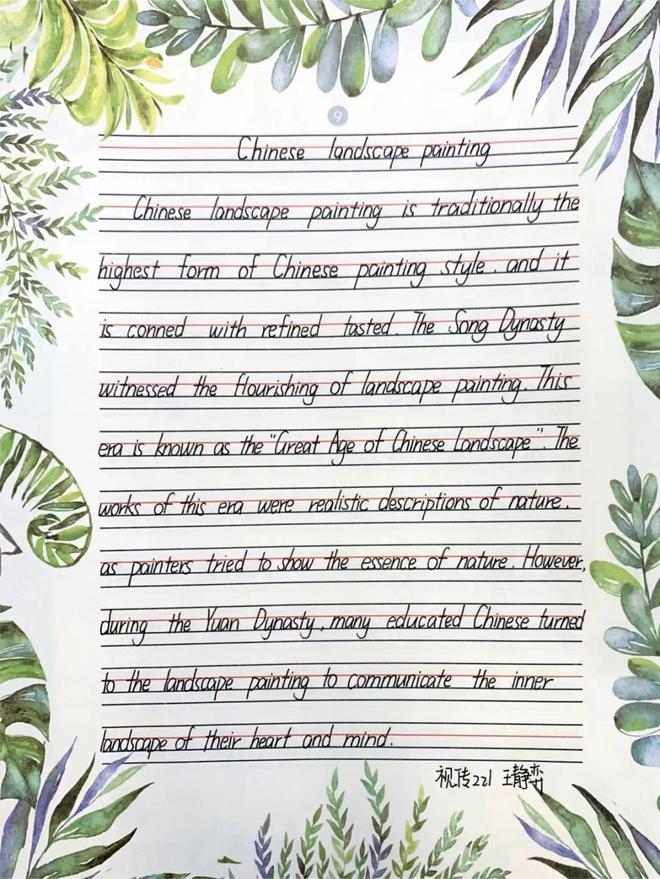 9
Chinese landscape painting
Chinese landscape painting is traditionally the
highest form of Chinese painting style. and it
is conned with refined tasted. The Song Dynasty
witnessed the flourishing of landscape painting. This
era is known as the "Great Age of Chinese Landscape". The
works of this era were realistic descriptions of nature.
as painters tried to show the essence of nature. However,
during the Yuan Dynasty, many educated Chinese turned
to the landscape painting to communicate the inner
landscape of their heart and mind.
视传221 王静奕